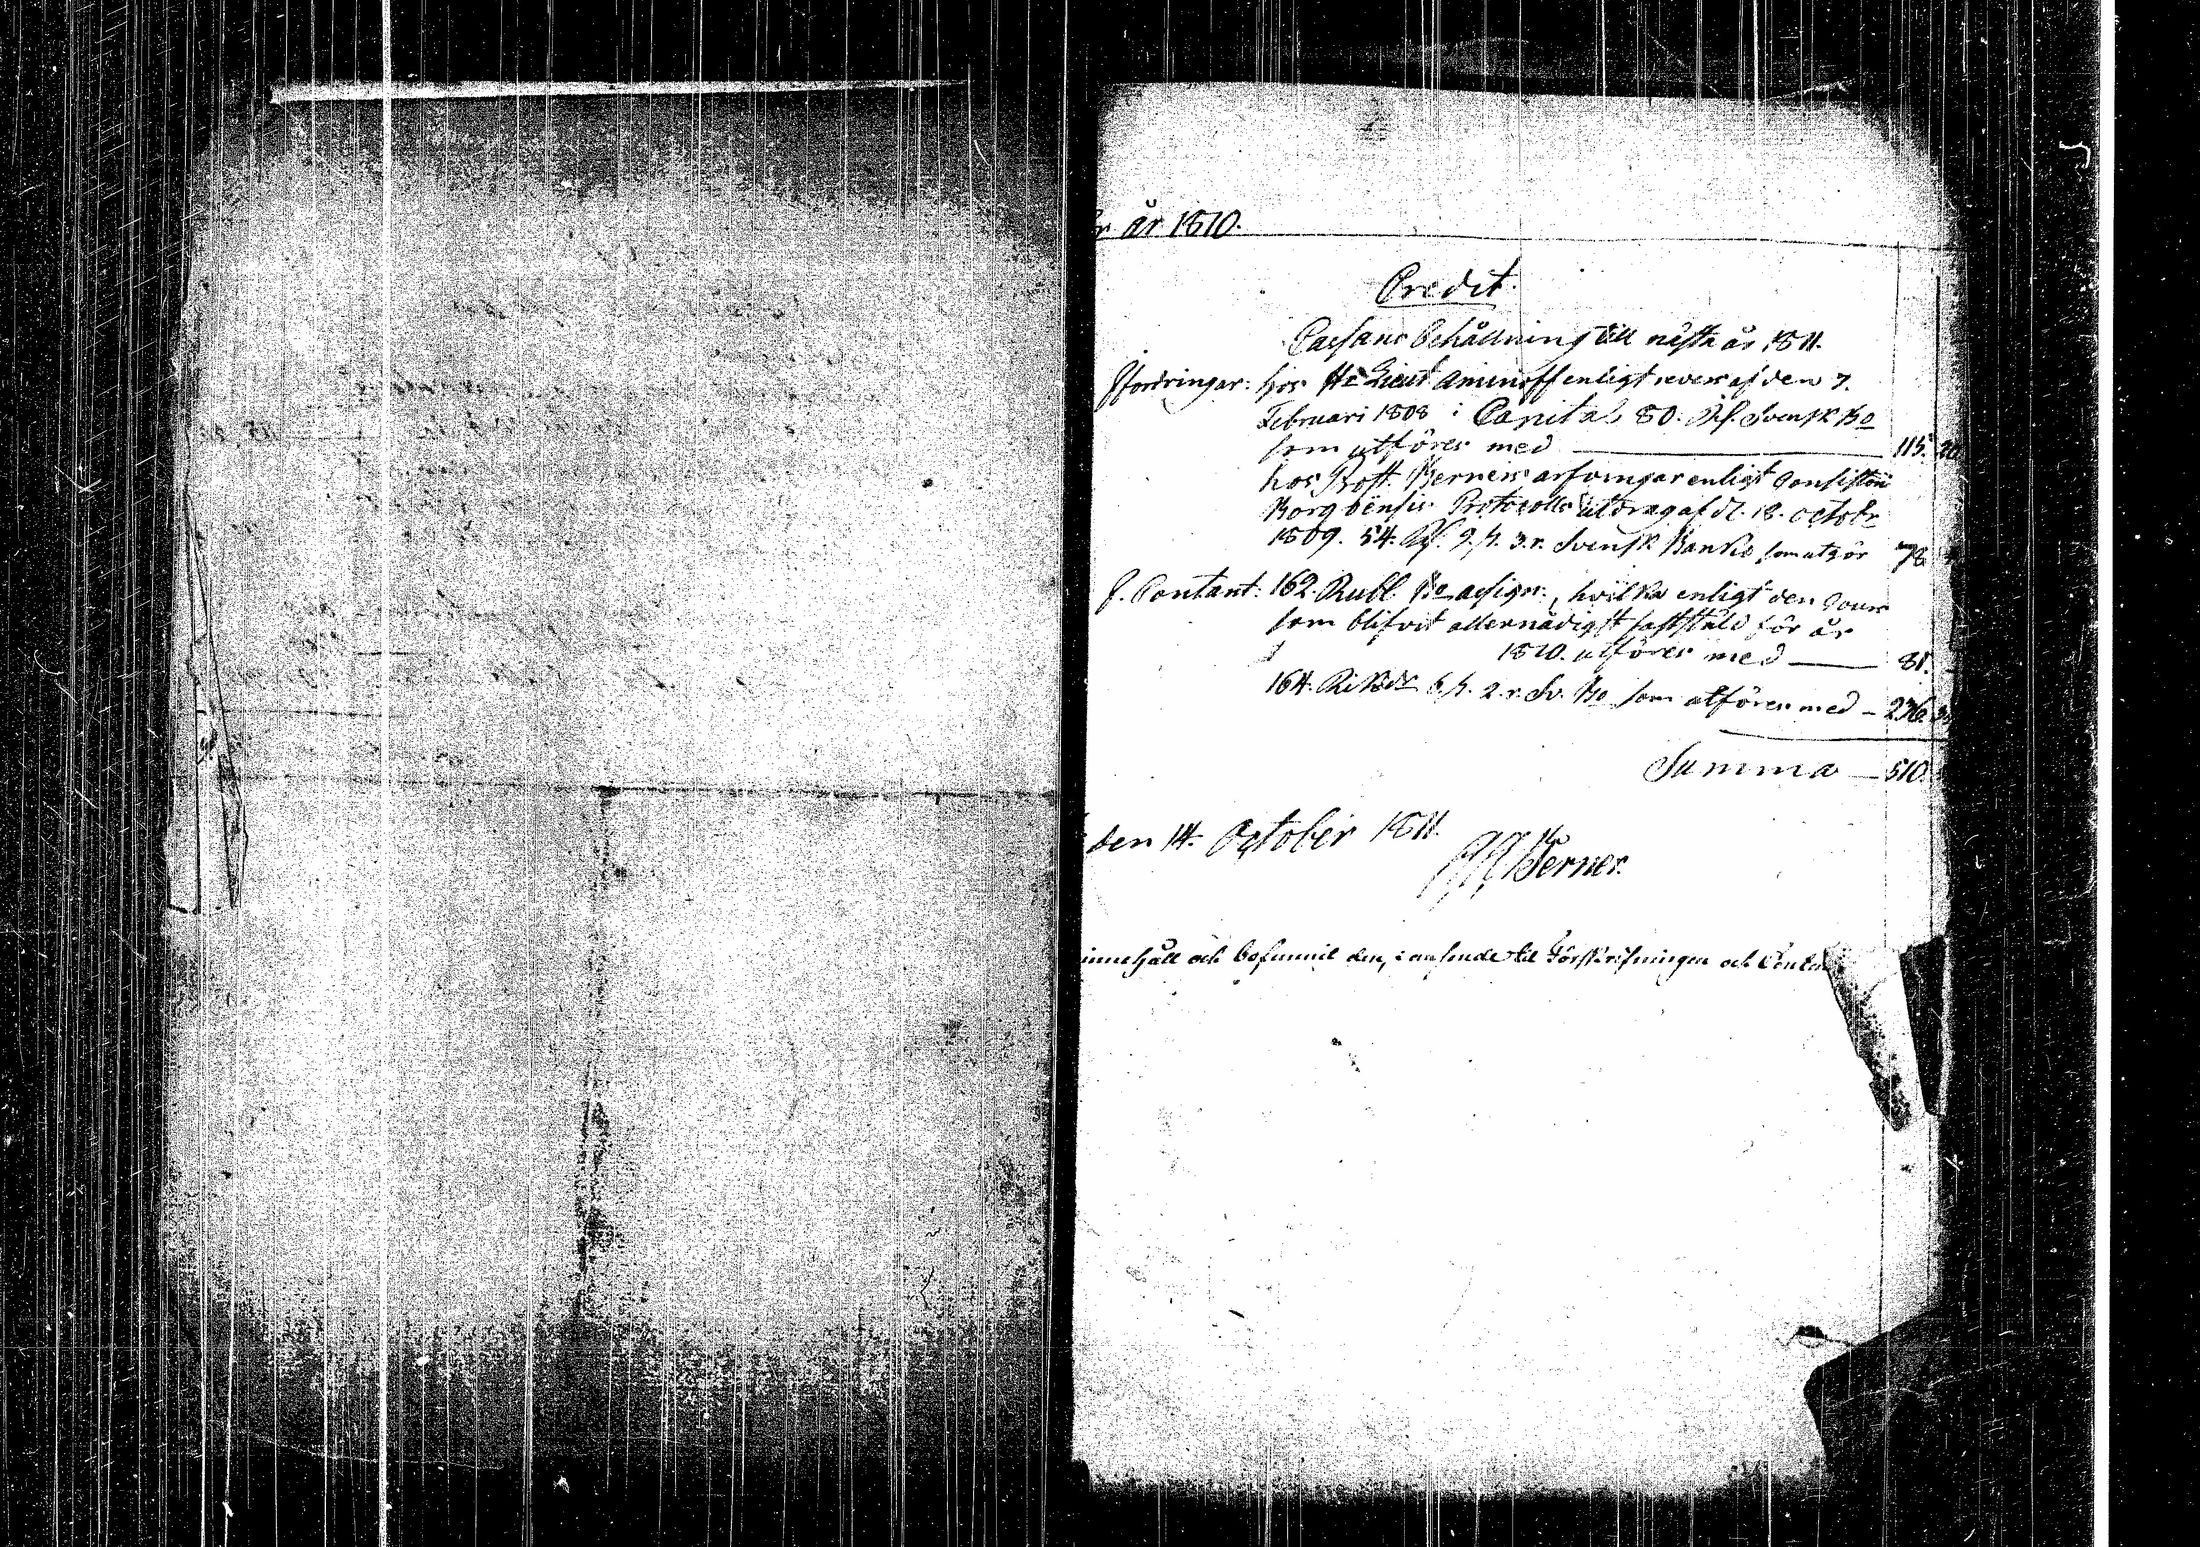 år 1810.
Credit.
Cassans behållning till nästa år 1811.
Ffordringar: hos Hr Lieut Aminoff enligt revers af den 7.
Februari 1808 i Capital 80. Rd. Svensk Bo
som utföres med 115. 20
hos Prost. Berners arfvingar enligt Consistorii
Borgoënsis Protocolls utdrag af d. 18. octobr
1809. 54. Rd. 9. s. 3. r. Svensk Banko som utgör 78
J. Contant: 162. Rubl. Bo assign:, hvilka enligt den Cours
som blifvit allernådigst fastställd för år
1810. utföres med 81.
164. Riksdr 6. s. 2. r. Sv. Bo som utföres med 236
Summa 510.
den 14. October 1811.
Berner.
innehåll och befunnit den, i anseende til Förskrifningen och